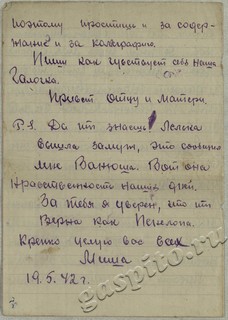 поэтому простишь и за содер-
жание и за каллиграфию.
Пиши как чувствует себя наша
Галочка.
Привет Отцу и Матери.
P.S. Да ты знаешь! Лелека
вышла замуж, это сообщил
мне Ванюша. Вот она
нравственность наших дней.
За тебя я уверен, что ты
Верна как Пенелопа.
Крепко целую вас всех
Миша
19.5.42 г.
gaspito.ru